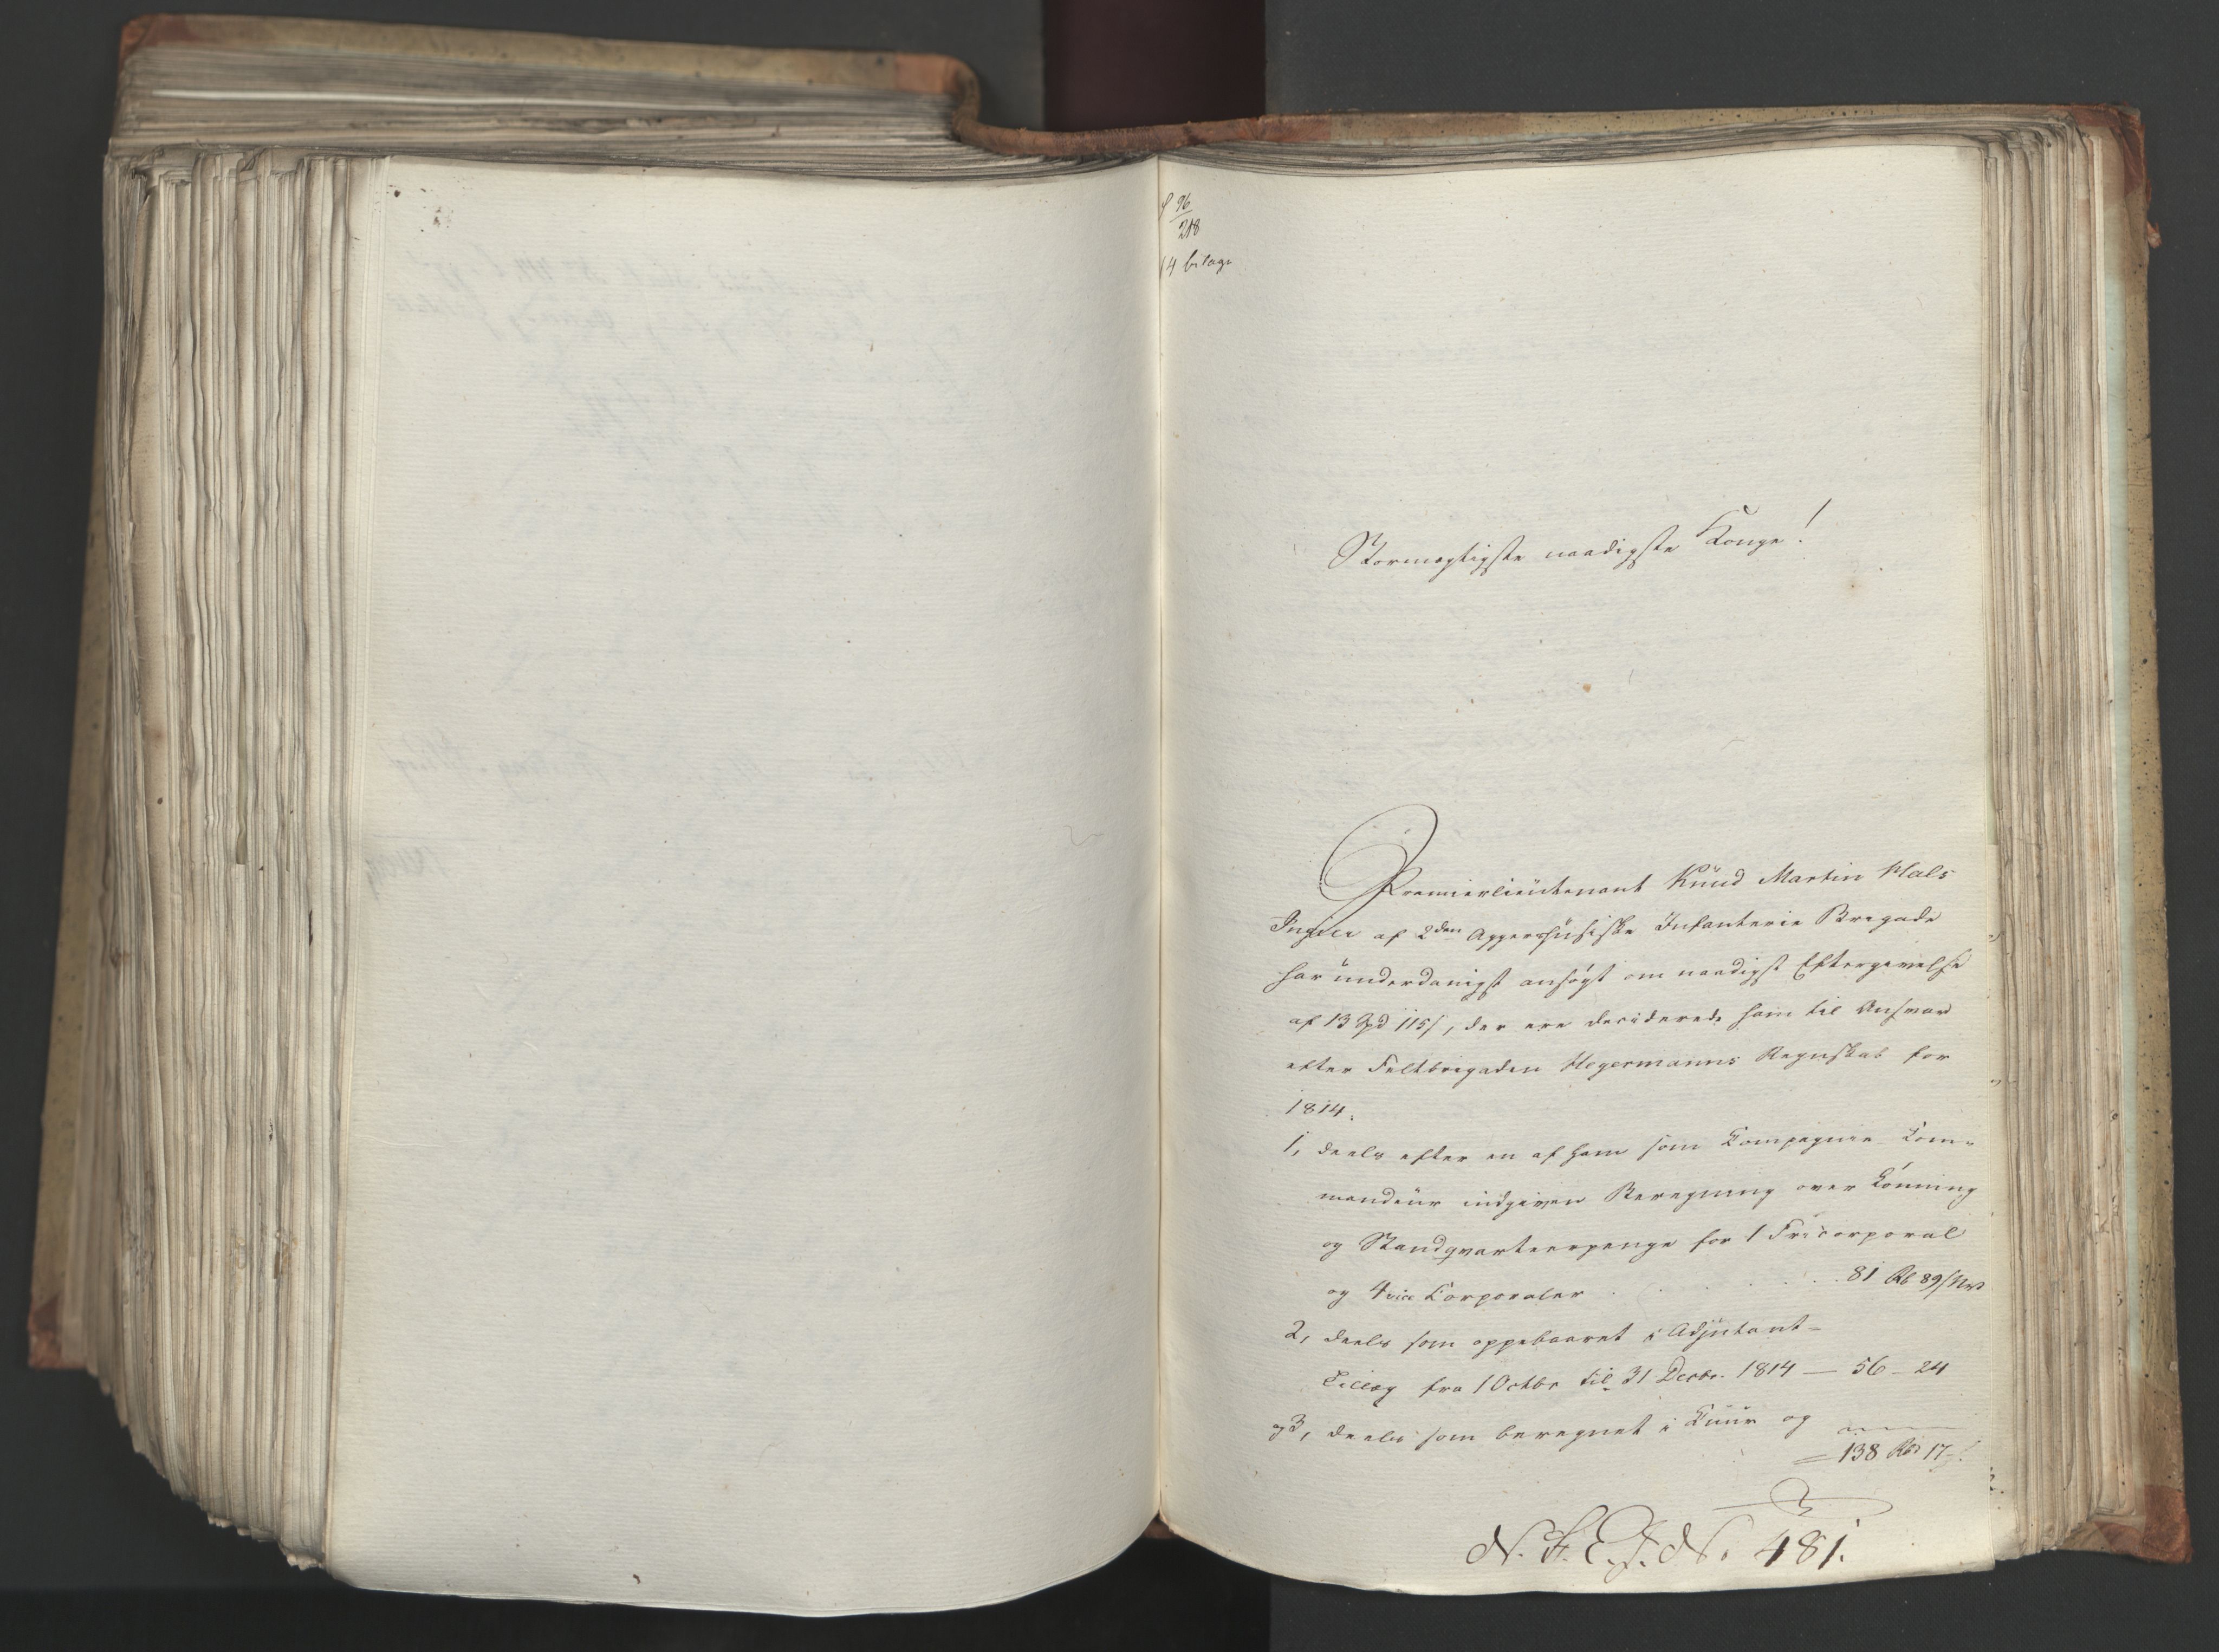 96
218
14 bilage
Stormægtigste naadigste Konge!
Premierlieutenant Knud Martin Hals
af 2den Aggershusiske Infanterie Brigade
har underdanigst ansøgt om naadigst Eftergivelse
af 13 Spd 115/, der ere deciderede ham til Ansvar
efter Feltbrigaden Hegermanns Regnskab for
1814.
1, deels efter en af ham som Compagnie Com-
mandeur indgiven Beregning over Lønning
og Standqvarteerpenge for 1 Fricorporal
og 4 vice Corporaler . . . . . 81 Rb 89/ NV
2, deels som oppebaaret i Adjutant-
Tillæg fra 1 Octbr til 31 Decbr. 1814 — 56 - 24
og 3, deels som beregnet i Cuur og
= 138 Rbd 17
N. 481.